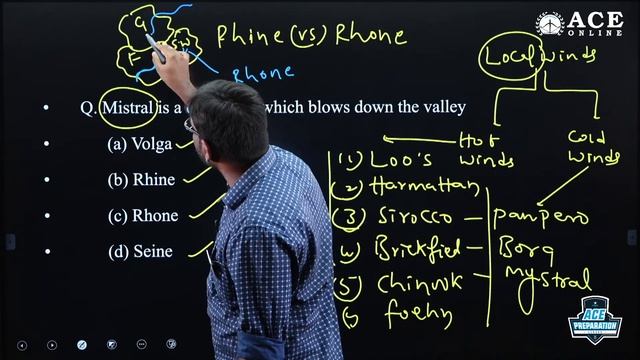 G
SW
F
Rhine (vs) Rhone
Rhone
ACE
ONLINE
Local winds
Q. Mistral is a which blows down the valley
(a) Volga
(b) Rhine
(c) Rhone
(d) Seine
Hot winds
Cold winds
(1) Loo's
(2) Harmattan
(3) Sirocco – Pampero
(4) Brickfied – Bora
(5) Chinook – mystral
(6) foehn
ACE
PREPARATION